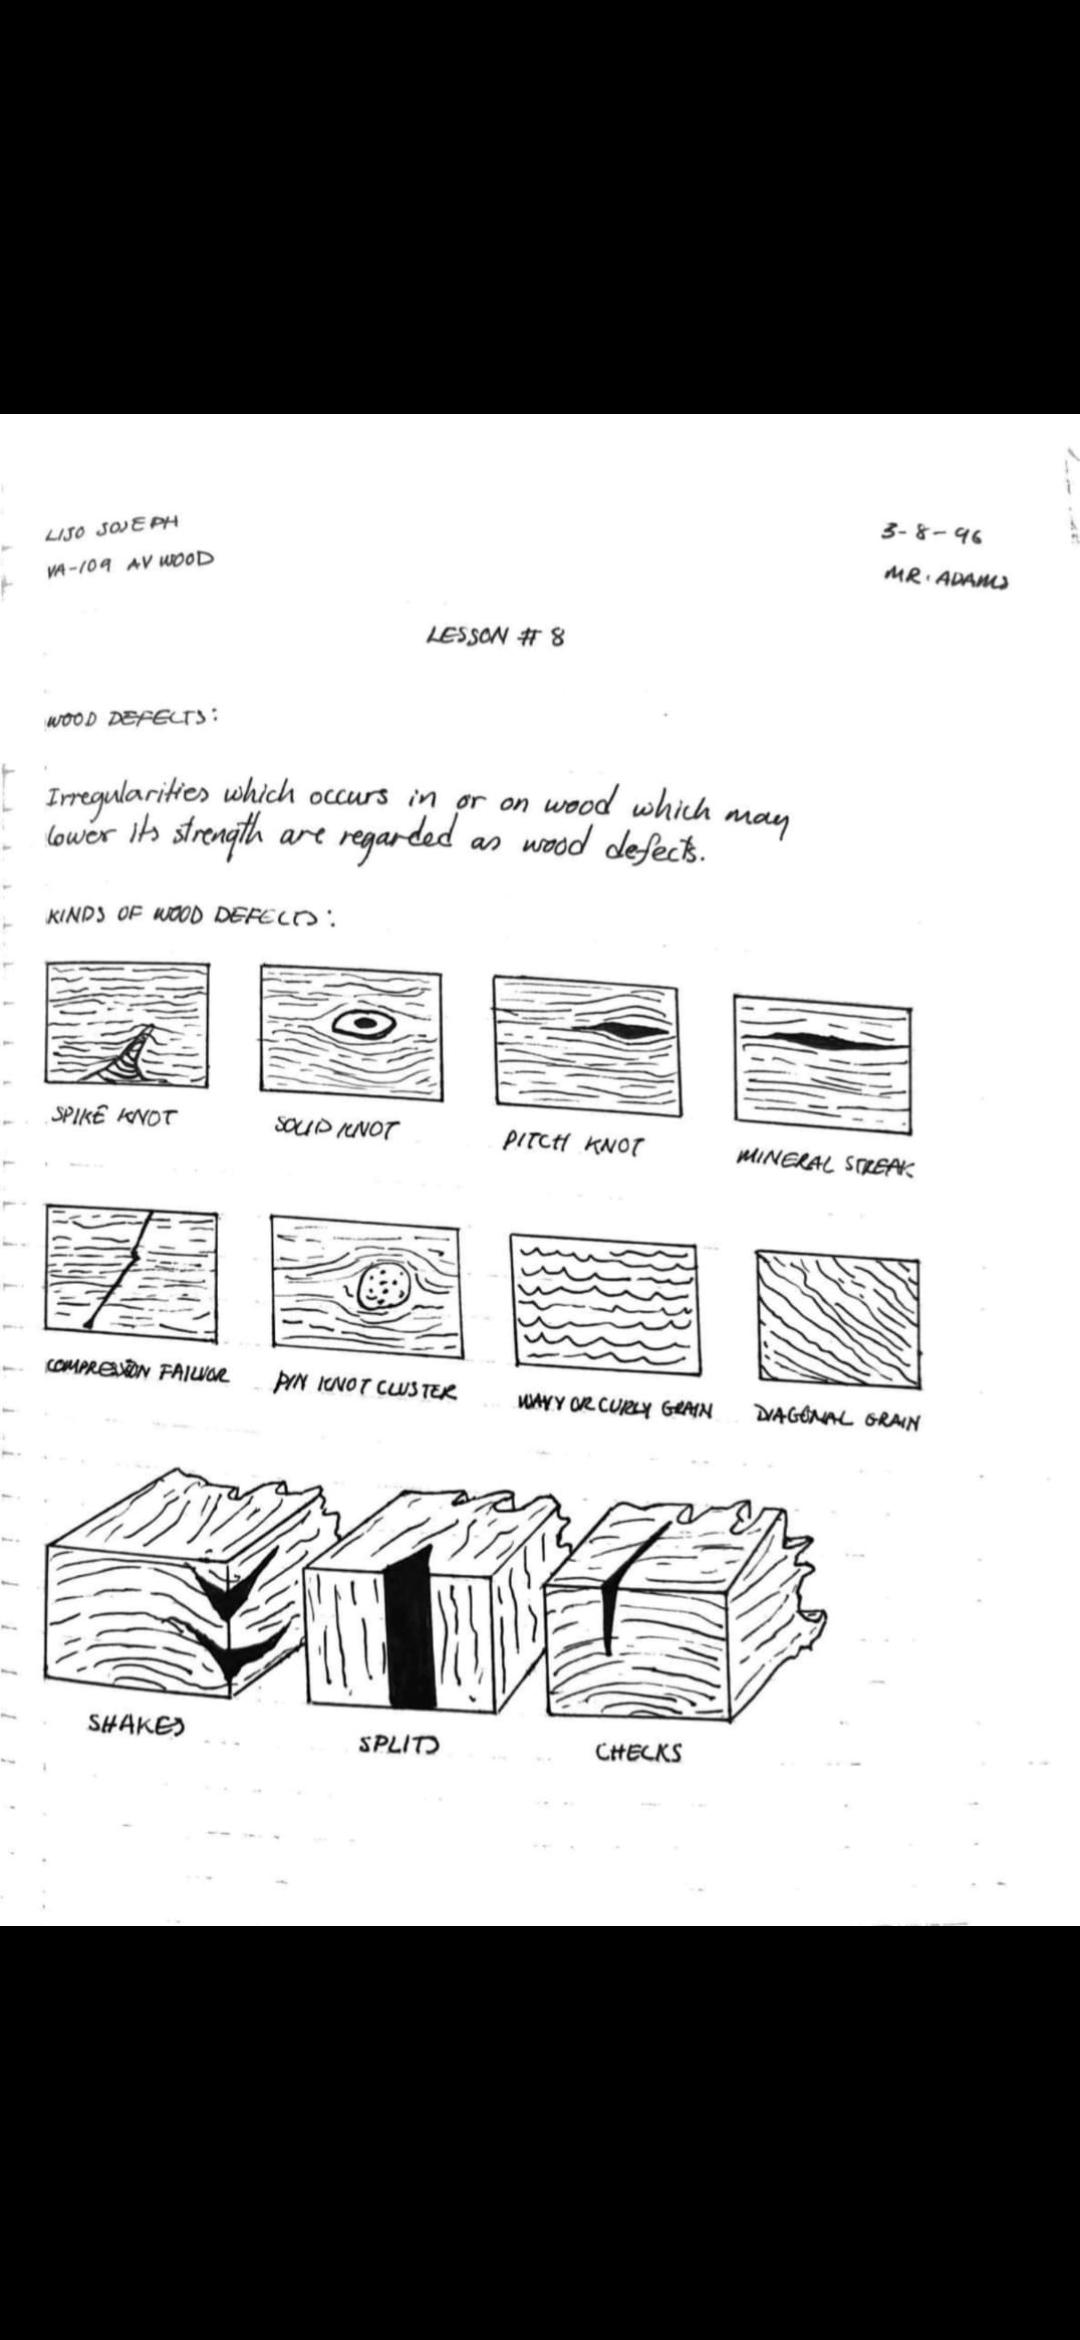 LIJO JOSEPH
3-8-96
VA-109 AV WOOD
MR. ADAMS
LESSON # 8
WOOD DEFECTS:
Irregularities which occurs in or on wood which may
lower its strength are regarded as wood defects.
KINDS OF WOOD DEFECTS:
SPIKE KNOT
SOLID KNOT
PITCH KNOT
MINERAL STREAK
COMPRESSION FAILUOR
PIN KNOT CLUSTER
WAVY OR CURLY GRAIN
DIAGONAL GRAIN
SHAKES
SPLITS
CHECKS